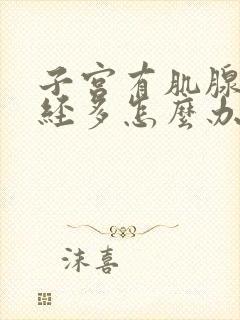 子宫有肌腺
经多怎麽办
沫喜